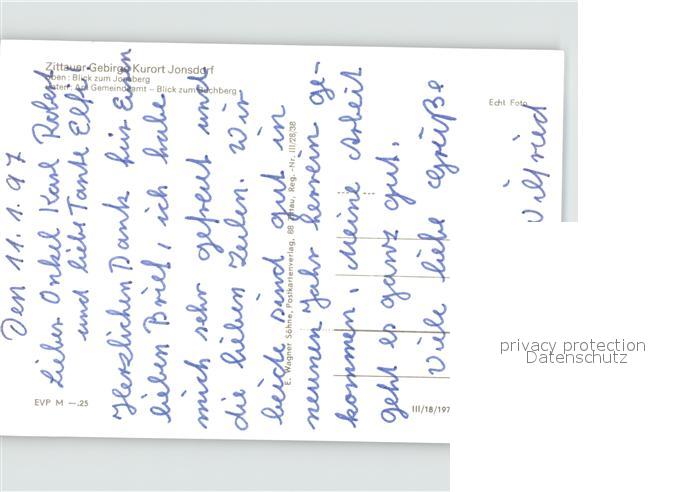 Zittauer Gebirge Kurort Jonsdorf
oben: Blick zum Jonsberg
unten: Am Gemeindeamt — Blick zum Buchberg
Echt Foto
Den 11.1.97
Lieber Onkel Karl Robert
und liebe Tante Elfe.
Herzlichen Dank für Euren
lieben Brief, ich habe
mich sehr gefreut und
die lieben Zeilen. Wir
beide sind gut in
neunen Jahr herrein ge-
kommen, Meine Arbeit
geht es ganz gut.
Viele liebe Grüße
Wilfried
E. Wagner Söhne, Postkartenverlag, 88 Zittau, Reg.-Nr. III/28/38
EVP M —.25
III/18/197
privacy protection
Datenschutz